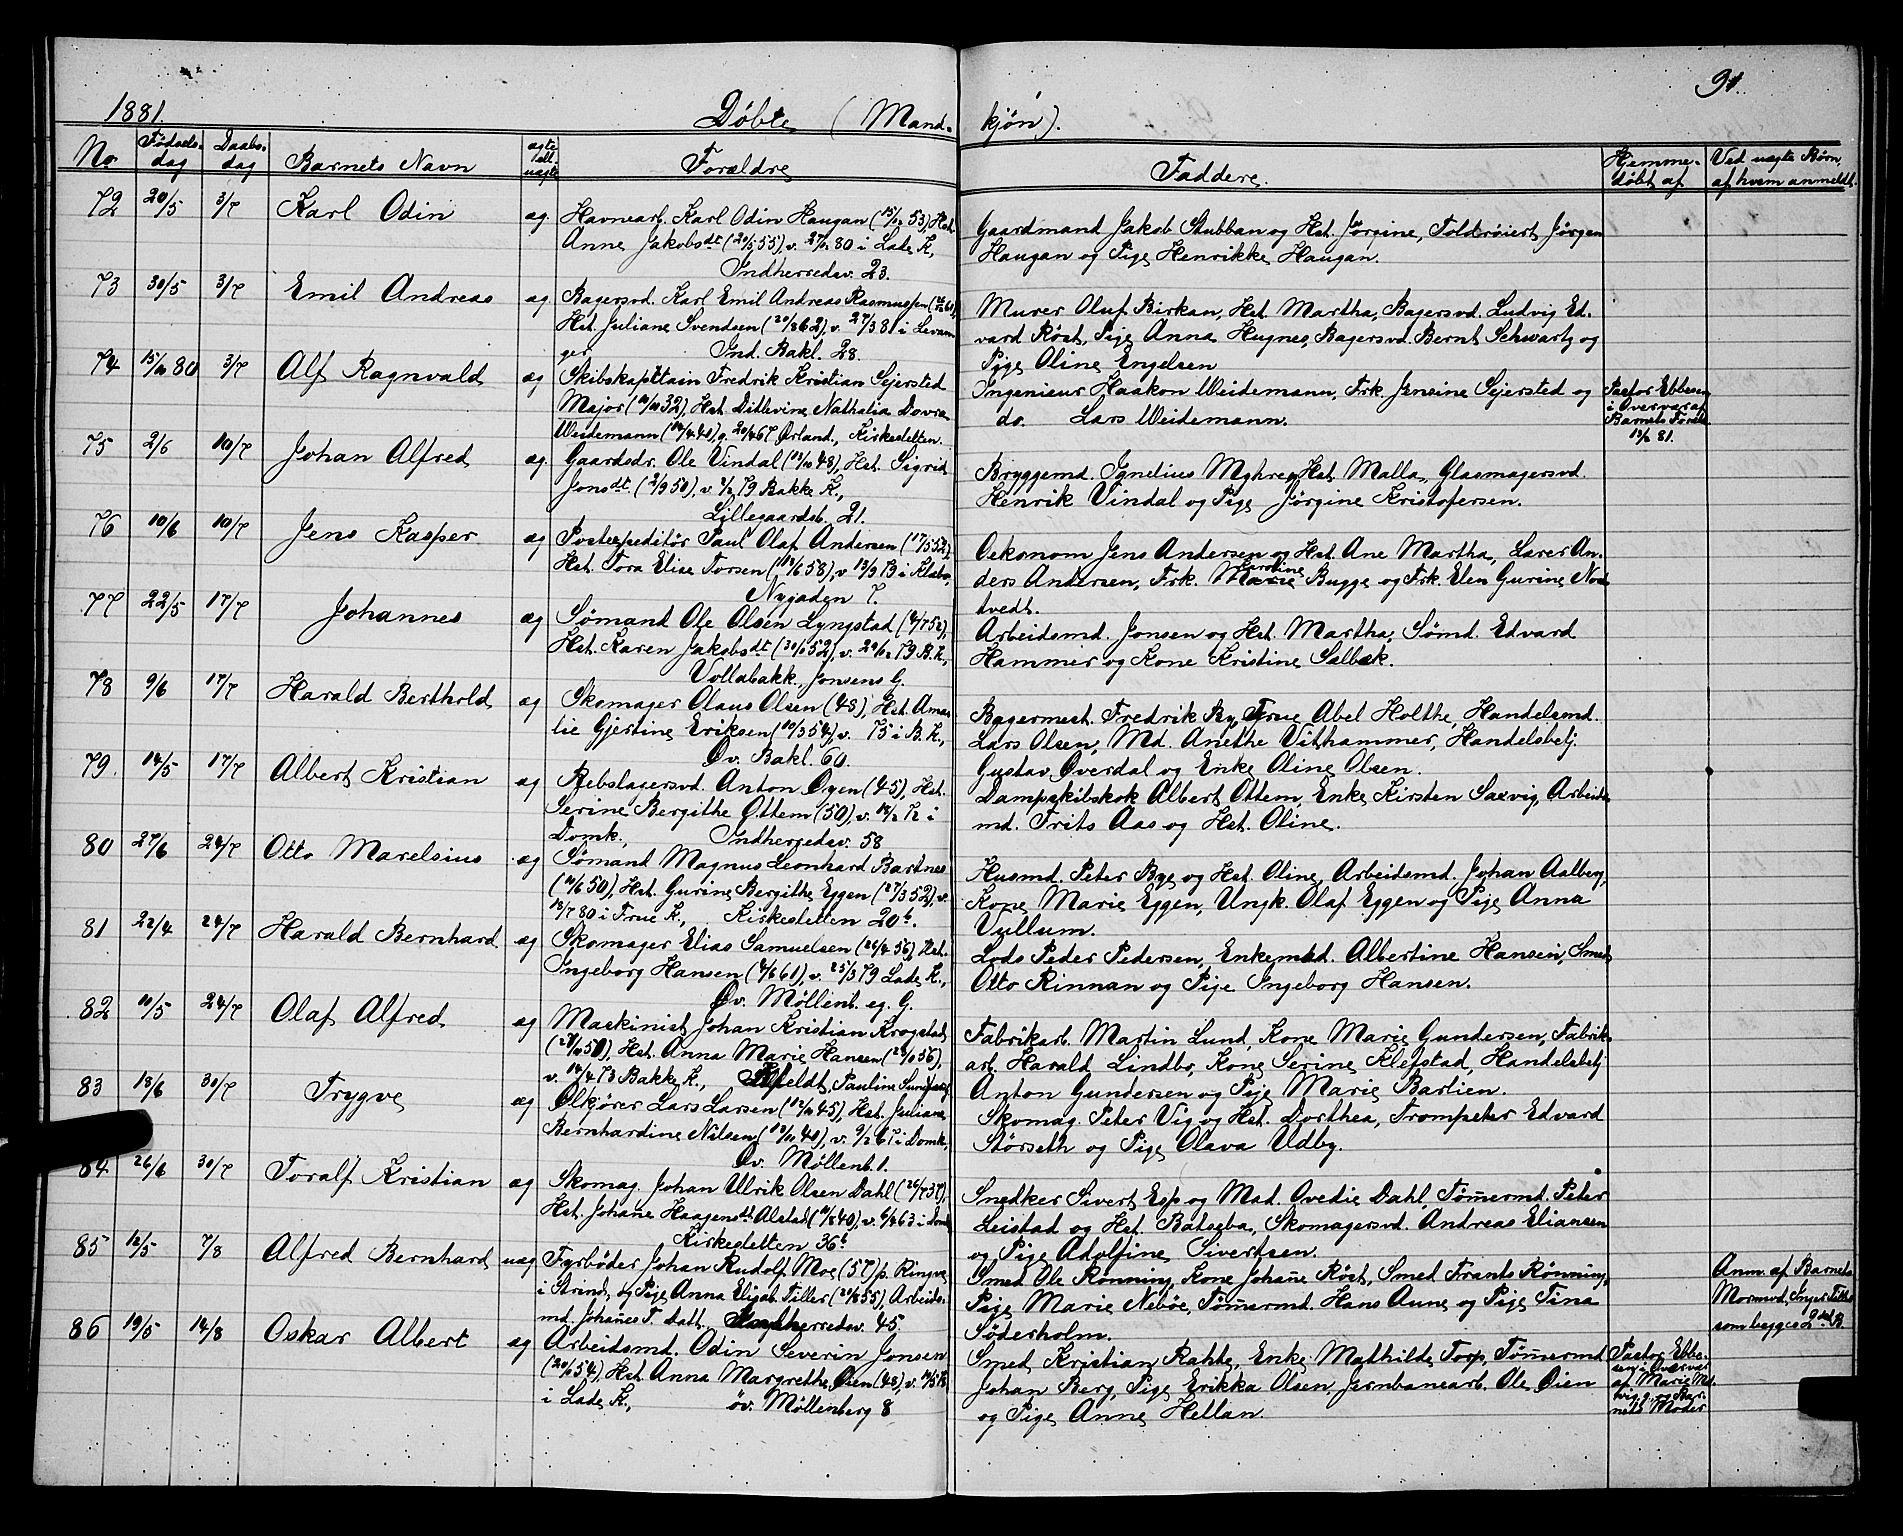 91.
1881. Döbte (Mand- kjön).
No. Födsels- dag Daabs- dag Barnets Navn ægte ell. uægte Forældre Faddere. Hjemme- döbt af Ved uægte Börn, af hvem anmeldt.
72 20/5 3/7 Karl Odin æg. Havnearb. Karl Odin Haugan (15/12 53), Hst.
Anne Jakobsdt (20/5 55), v. 27/12 80 i Lade K.,
Indherredsv. 23.
Gaardmand Jakob Stubban og Hst. Jörgine, Toldroiert Jörgen
Haugan og Pige Henrikke Haugan.
73 30/5 3/7 Emil Andreas æg. Bagersvd. Karl Emil Andreas Rasmussen
Hst. Juliane Svendsen (20/8 62), v. 27/3 81 i Levan-
ger, Ind. Bakl. 28.
Murer Oluf Birkan, Hst. Martha, Bagersvd. Ludvig Ed-
vard Röst, Pige Anna Hugnes, Bagersvd. Bernt Schwartz og
Pige Oline Engelsen
74 15/10 80 3/7 Alf Ragnvald æg Skibskaptain Fredrik Kristian Sejersted
Major (10/10 32), Hst. Ditlevine Nathalia Dovra
Weidemann (14/4 40), v. 20/4 67 Örland, Kirkesletten.
Ingenieur Haakon Weidemann, Frk. Jensine Sejersted og
do. Lars Weidemann.
Pastor Ebbesen
i Overvær af
Barnets Forældre
13/2 81.
75 2/6 10/7 Johan Alfred æg. Gaardsdr. Ole Vindal (13/10 48), Hst. Sigrid
Jonsdt. (2/9 50), v. 79 Bakke K.,
Lillegaardsb. 21.
Bryggemd. Hst. Malla, Glasmagersvd.
Henrik Vindal og Pige Jörgine Kristofersen.
76 10/6 10/7 Jens Kasper æg Postexpeditör Paul Olaf Andersen (17/5 52),
Hst. Tora Elise Torsen (18/6 58), v. 13/9 73 i Klæbo,
Nygaden 7.
Oekonom Jens Andersen og Hst. Ane Martha, Lærer An-
ders Andersen, Frk. Karoline Bugge og Frk. Elen Gurine Nord-
tvedt.
77 22/5 17/7 Johannes æg Sömand Ole Olsen Lyngstad (4/7 52),
Hst. Karen Jakobsdt (30/1 52), v. 29/12 79 B. K.,
Vollabakk., Jonsens G.
Arbeidsmd. Jonsen og Hst. Martha, Sömd. Edvard
Hammer og Kone Kristine Salbæk.
78 9/6 17/7 Harald Berthold æg Skomager Olaus Olsen (48), Hst. Ama-
lie Gjertine Eriksen (10/3 54), v. 75 i B. K.,
Öv. Bakl. 60.
Bagermest. Fredrik By, Frue Abel Holthe, Handelsmd.
Lars Olsen, Md. Anethe Vithammer, Handelsbetj.
Gustav Överdal og Enke Oline Olsen.
79. 14/5 17/7 Albert Kristian æg Rebslagersvd. Anton Öyen (45), Hst.
Serine Bergithe Ottem (50), v. 14/2 72 i
Domk., Indherredsv. 58
Dampskibskok Albert Ottem, Enke Kirsten Saxvig, Arbeids-
md. Frits Aas og Hst. Oline.
80 27/6 24/7 Otto Marelsius æg Sömand Magnus Leonhard Bartnes
(10/6 50), Hst. Gurine Bergithe Eggen (27/3 52), v.
18/7 80 i Frue K., Kirkesletten 20b.
Husmd. Peter Bye og Hst. Oline, Arbeidsmd. Johan Aalberg,
Kone Marie Eggen, Ungk. Olaf Eggen og Pige Anna
Vullum.
81 22/4 24/7 Harald Bernhard æg Skomager Elias Samuelsen (26/4 56), Hst.
Ingeborg Hansen (4/6 61), v. 25/3 79 Lade K.,
Öv. Möllenb. eg. G.
Lods Peder Pedersen, Enkemad. Albertine Hansen, Smed
Otto Rinnan og Pige Ingeborg Hansen.
82 11/5 24/7 Olaf Alfred æg Maskinist Johan Kristian Krogstad
(28/10 50), Hst. Anna Marie Hansen (29/10 56),
v. 14/4 73 Bakke K., Pauline
Fabrikarb. Martin Lund, Kone Marie Gundersen, Fabrik-
arb. Harald Lindbo, Kone Serine Klefstad, Handelsbetj
Anton Gundersen og Pige Marie Barlien.
83 18/6 30/7 Trygve æg Ölkjörer Lars Larsen (12/10 45), Hst. Juliane
Bernhardine Nilsen (13/11 40), v. 9/2 67 i Domk.,
Öv. Möllenb. 1.
Skomag. Peter Vig og Hst. Dorthea, Trompeter Edvard
Störseth og Pige Olava Udby.
84. 26/6 30/7 Toralf Kristian æg Skomag. Johan Ulrik Olsen Dahl (26/7 37),
Hst. Johane Haagensdt Alstad (11/8 40), v. 6/4 63 i Domk.
Kirkesletten 36b
Snedker Sivert Esp og Mad. Ovedie Dahl, Tömermd. Peter
Leistad og Hst. Batseba, Skomagersvd. Andreas Eliansen
og Pige Adolfine Sivertsen.
85 12/5 7/8 Alfred Bernhard uæg Fyrböder Johan Rudolf Moe (57) p. Ringve
i Strind, og Pige Anna Elisab. Tiller (21/8 55), Arbeids-
md. Johanes T. Datt., Indherredsv. 45.
Smed Ole Rönning, Kone Johane Röst, Smed Frants Rönning,
Pige Marie Neböe, Tömermd. Hans Aune og Pige Tina
Söderholm.
Anm. af Barnets
Mormoder, Inger Tiller
som begges 2det B.
86 19/5 14/8 Oskar Albert æg Arbeidsmd. Odin Severin Jonsen
(20/1 54), Hst. Anna Margrethe Öien (48), v.
i Lade K., öv. Möllenberg 8
Smed Kristian Rahte, Enke Mathilde Torp, Tömermd
Johan Berg, Pige Erikka Olsen, Jernbanearb. Ole Öien
og Pige Anne Hellan.
Pastor Ebbe-
sen i Overvær
af Marie Mel-
vig og Bar-
nets Moder